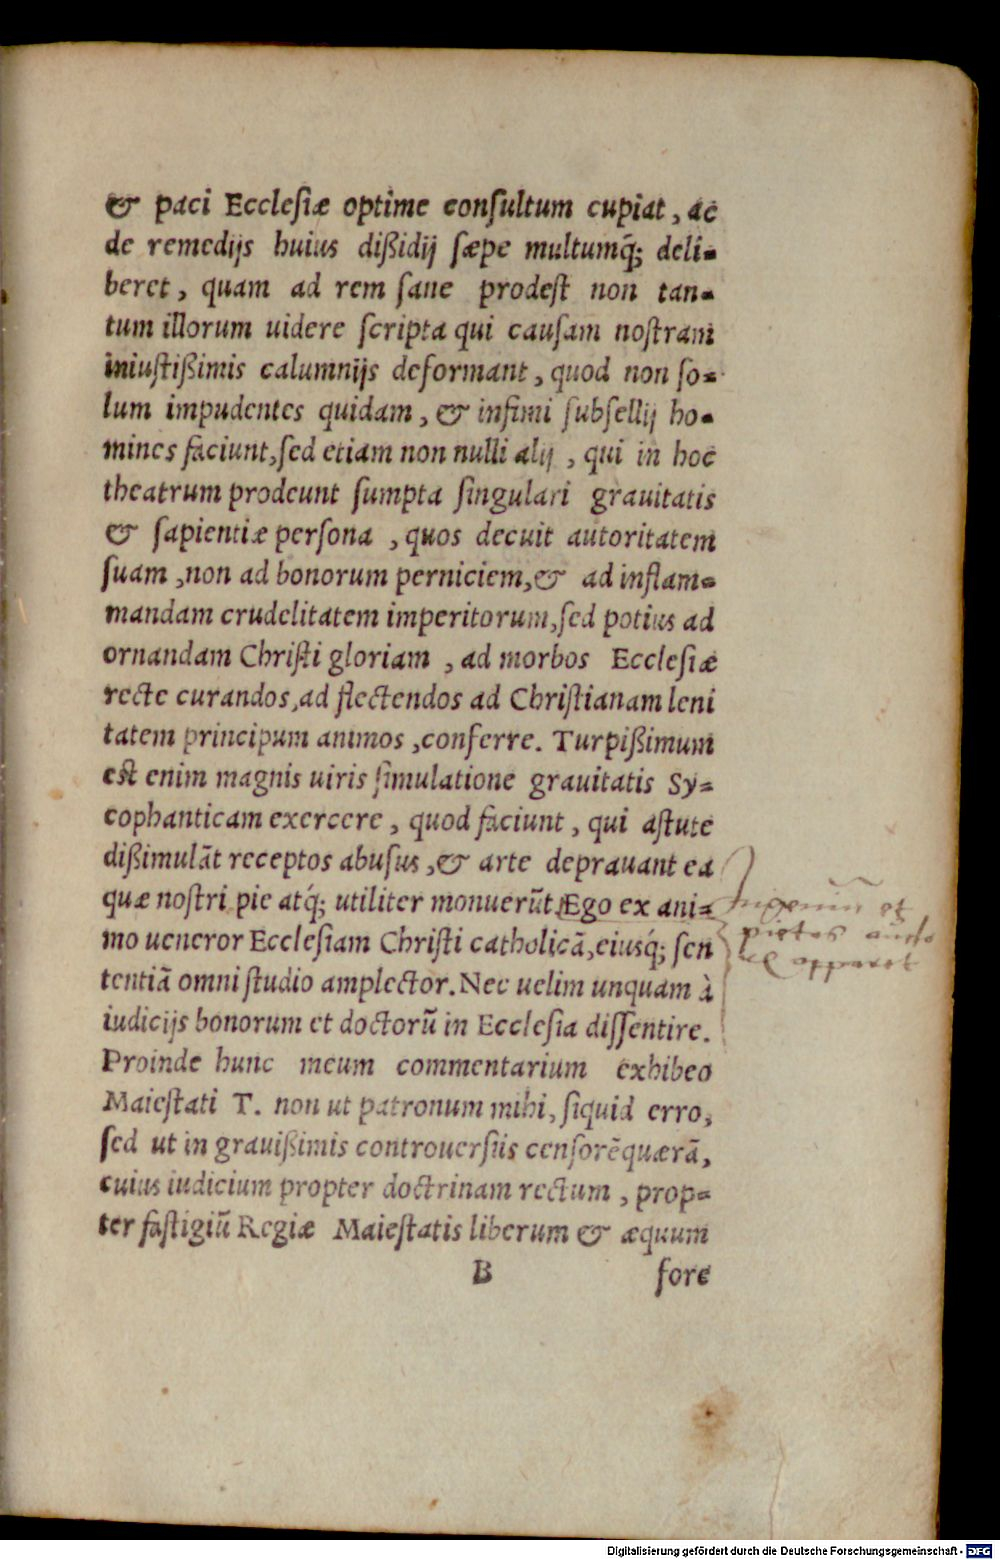 & paci Ecclesiæ optime consultum cupiat, ac
de remedijs huius dißidij sæpe multumq́; deli-
beret, quam ad rem sane prodest non tan-
tum illorum uidere scripta qui causam nostram
iniustißimis calumnijs deformant, quod non so-
lum impudentes quidam, & infimi subsellij ho-
mines faciunt, sed etiam non nulli alij, qui in hoc
theatrum prodeunt sumpta singulari grauitatis
& sapientiæ persona, quos decuit autoritatem
suam, non ad bonorum perniciem, & ad inflam-
mandam crudelitatem imperitorum, sed potius ad
ornandam Christi gloriam, ad morbos Ecclesiæ
recte curandos, ad flectendos ad Christianam leni
tatem principum animos, conferre. Turpißimum
est enim magnis uiris simulatione grauitatis Sy-
cophanticam exercere, quod faciunt, qui astute
dißimulãt receptos abusus, & arte deprauant ea
quæ nostri pie atq́; utiliter monuerũt. Ego ex ani-
mo ueneror Ecclesiam Christi catholicã, eiusq́; sen
tentiã omni studio amplector. Nec uelim unquam à
iudicijs bonorum et doctorũ in Ecclesia dissentire.
Proinde hunc meum commentarium exhibeo
Maiestati T. non ut patronum mihi, siquid erro,
sed ut in grauißimis controuersiis censorẽ quærã,
cuius iudicium propter doctrinam rectum, prop-
ter fastigiũ Regiæ Maiestatis liberum & æquum
B fore
et
pietas
apparet
Digitalisierung gefördert durch die Deutsche Forschungsgemeinschaft - DFG